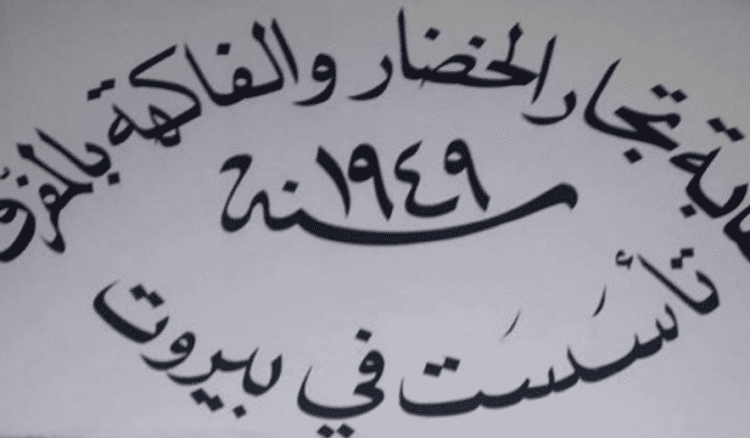 نقابة تجار الخضار والفاكهة بالمفرق
سنة ١٩٤٩
تأسَسَت في بيروت